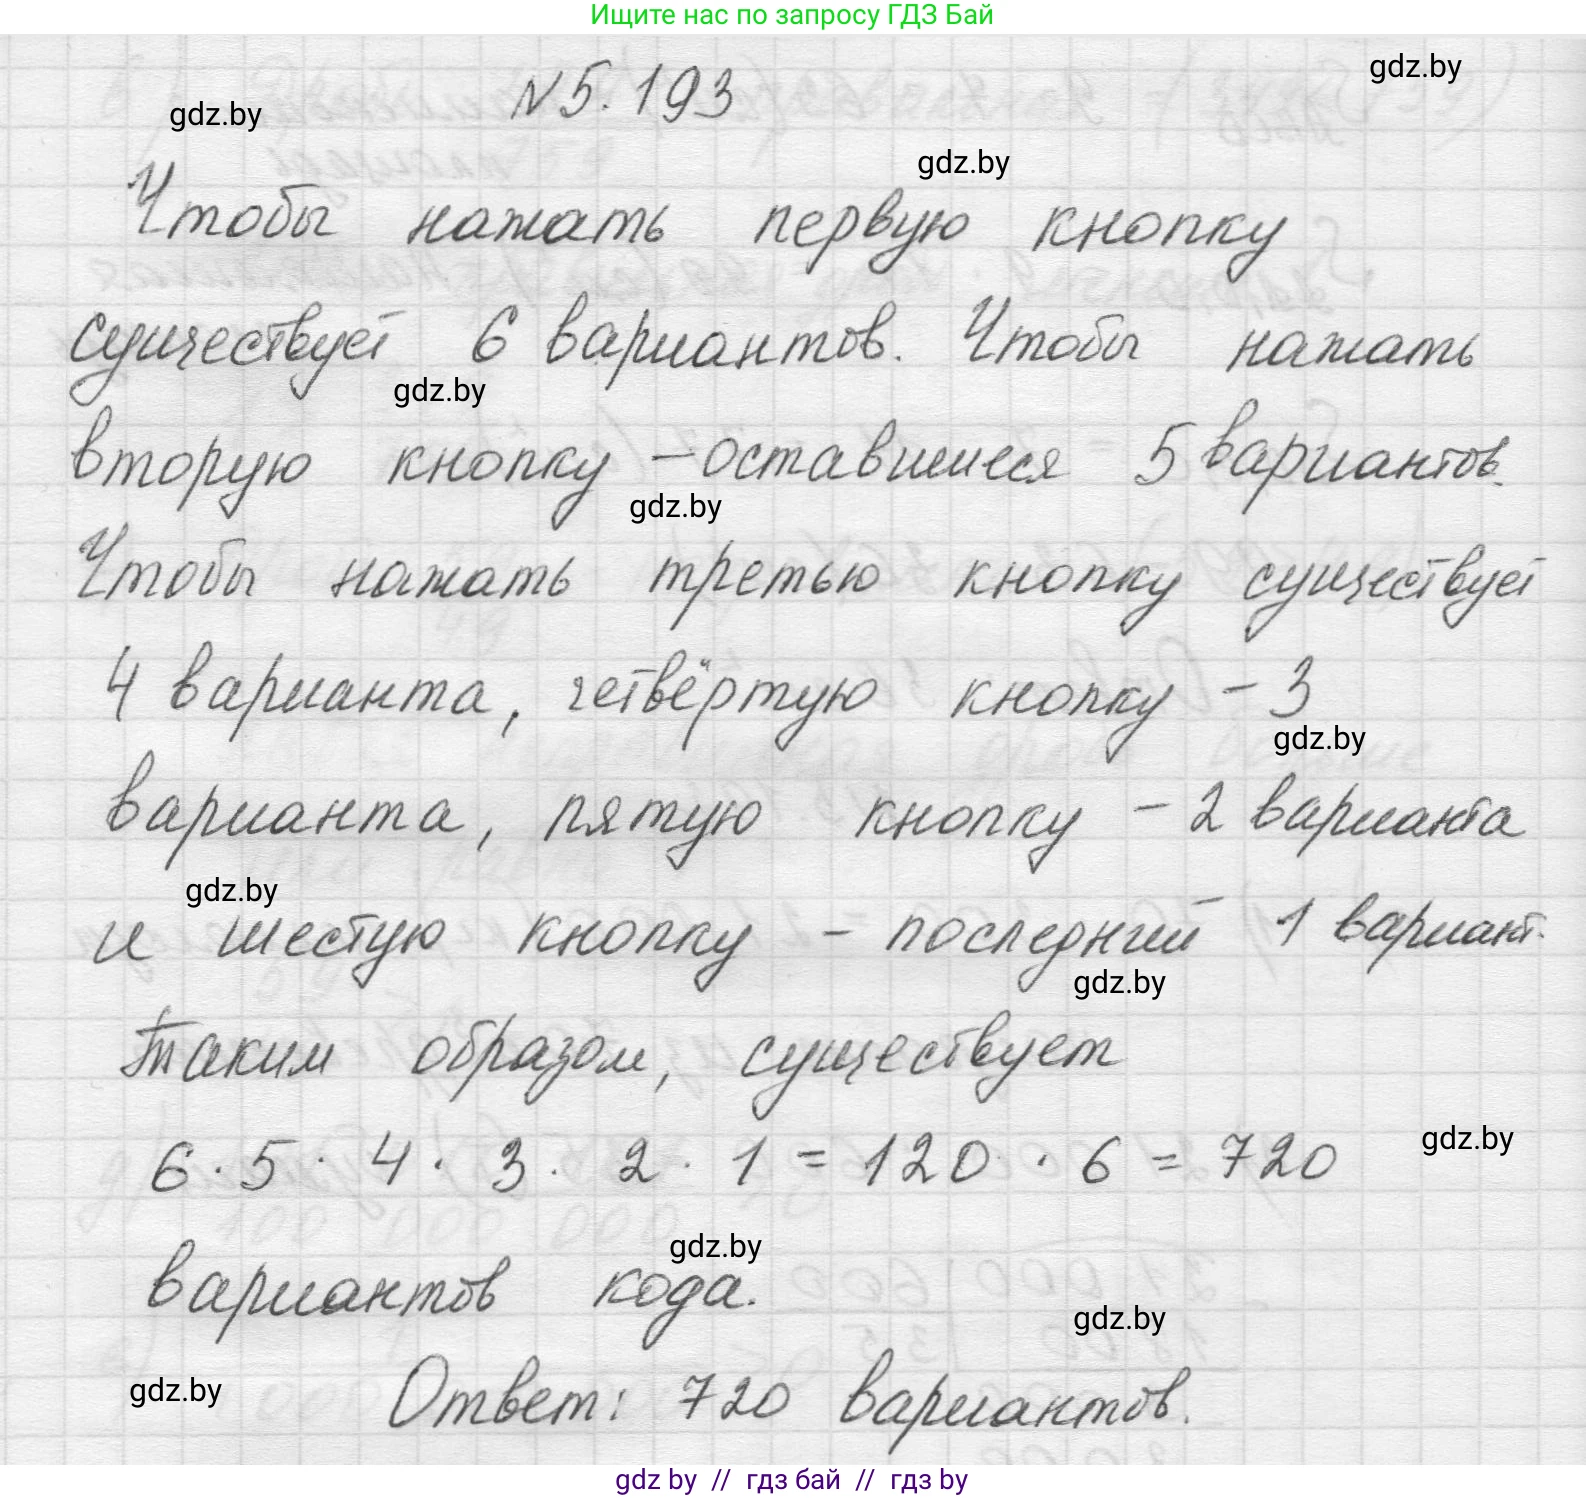 Ищите нас по запросу ГДЗ Бай
gdz.by
N 5.193
gdz.by
gdz.by
Чтобы нажать первую кнопку
существует 6 вариантов. Чтобы нажать
gdz.by
вторую кнопку - оставшиеся 5 вариантов.
gdz.by
Чтобы нажать третью кнопку существует
4 варианта, четвёртую кнопку - 3
gdz.by
варианта, пятую кнопку - 2 варианта
gdz.by
и шестую кнопку - последний 1 вариант.
gdz.by
Таким образом, существует
6 · 5 · 4 · 3 · 2 · 1 = 120 · 6 = 720
gdz.by
gdz.by
вариантов кода.
gdz.by
gdz.by
Ответ: 720 вариантов.
gdz by // гдз бай // гдз by